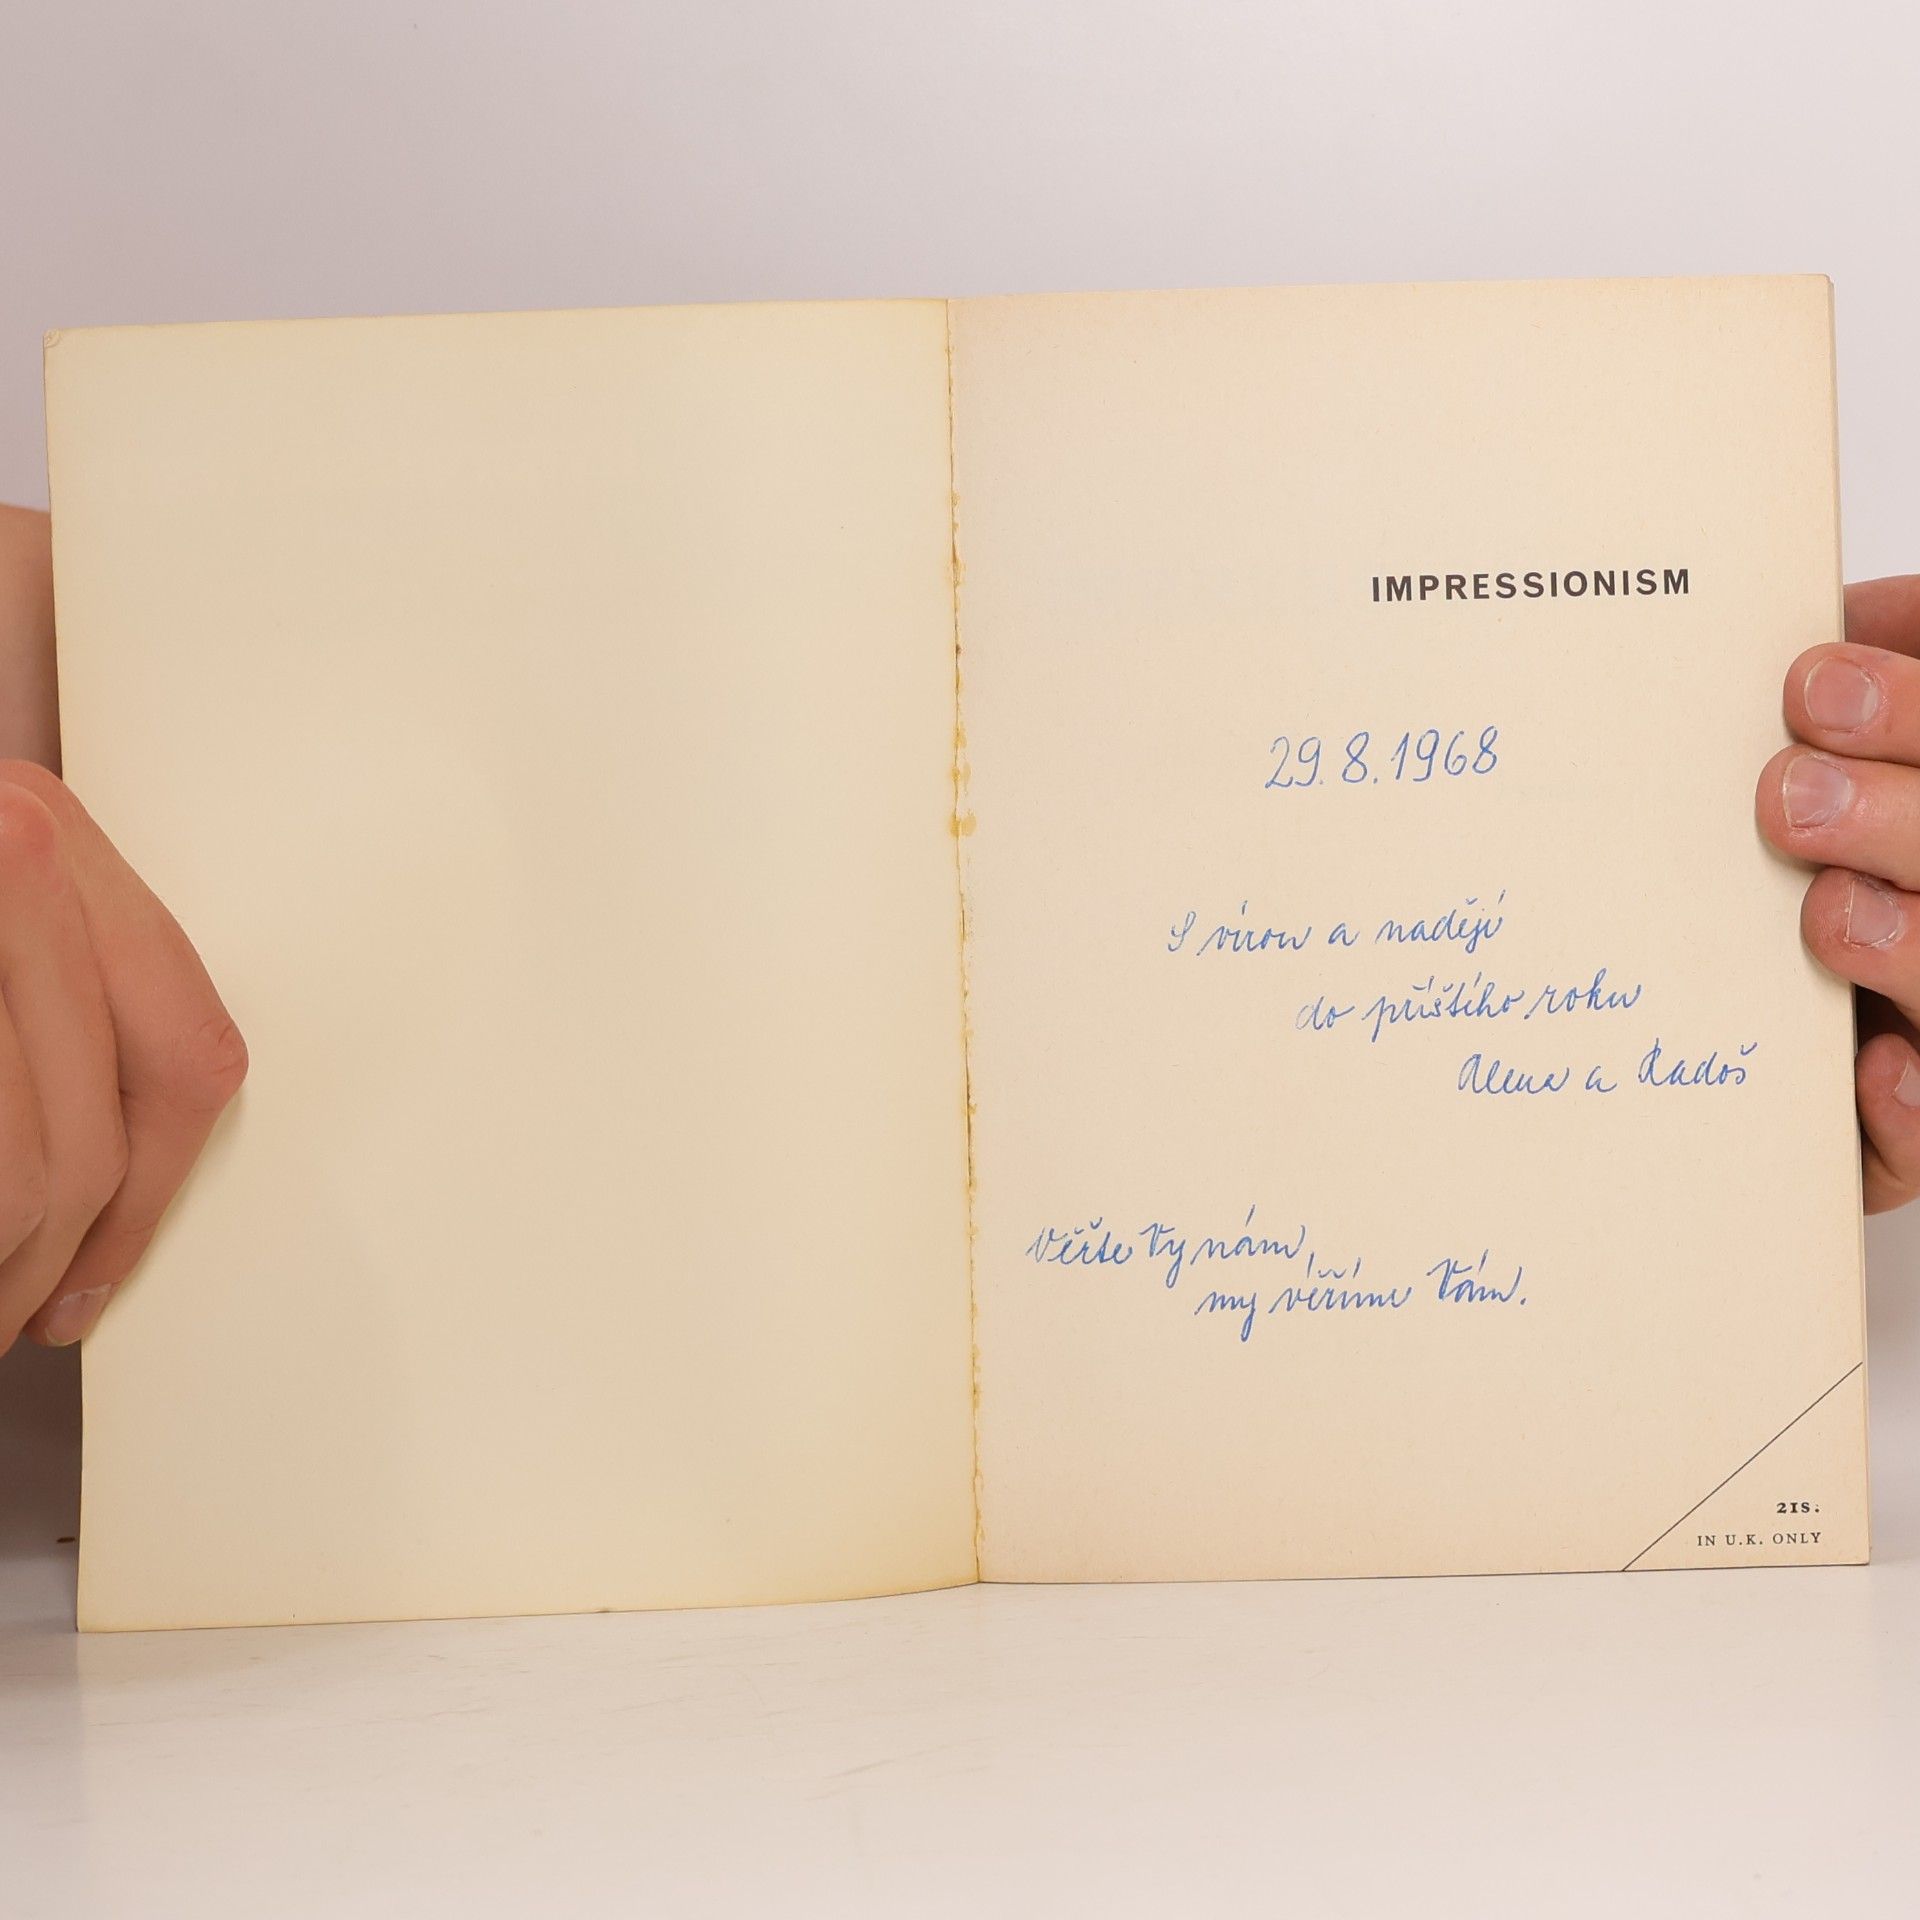 IMPRESSIONISM
29.8.1968
S vírou a nadějí
do příštího roku
Alena a Radoš
Věřte Vy nám,
my věříme Vám.
21S.
IN U.K. ONLY